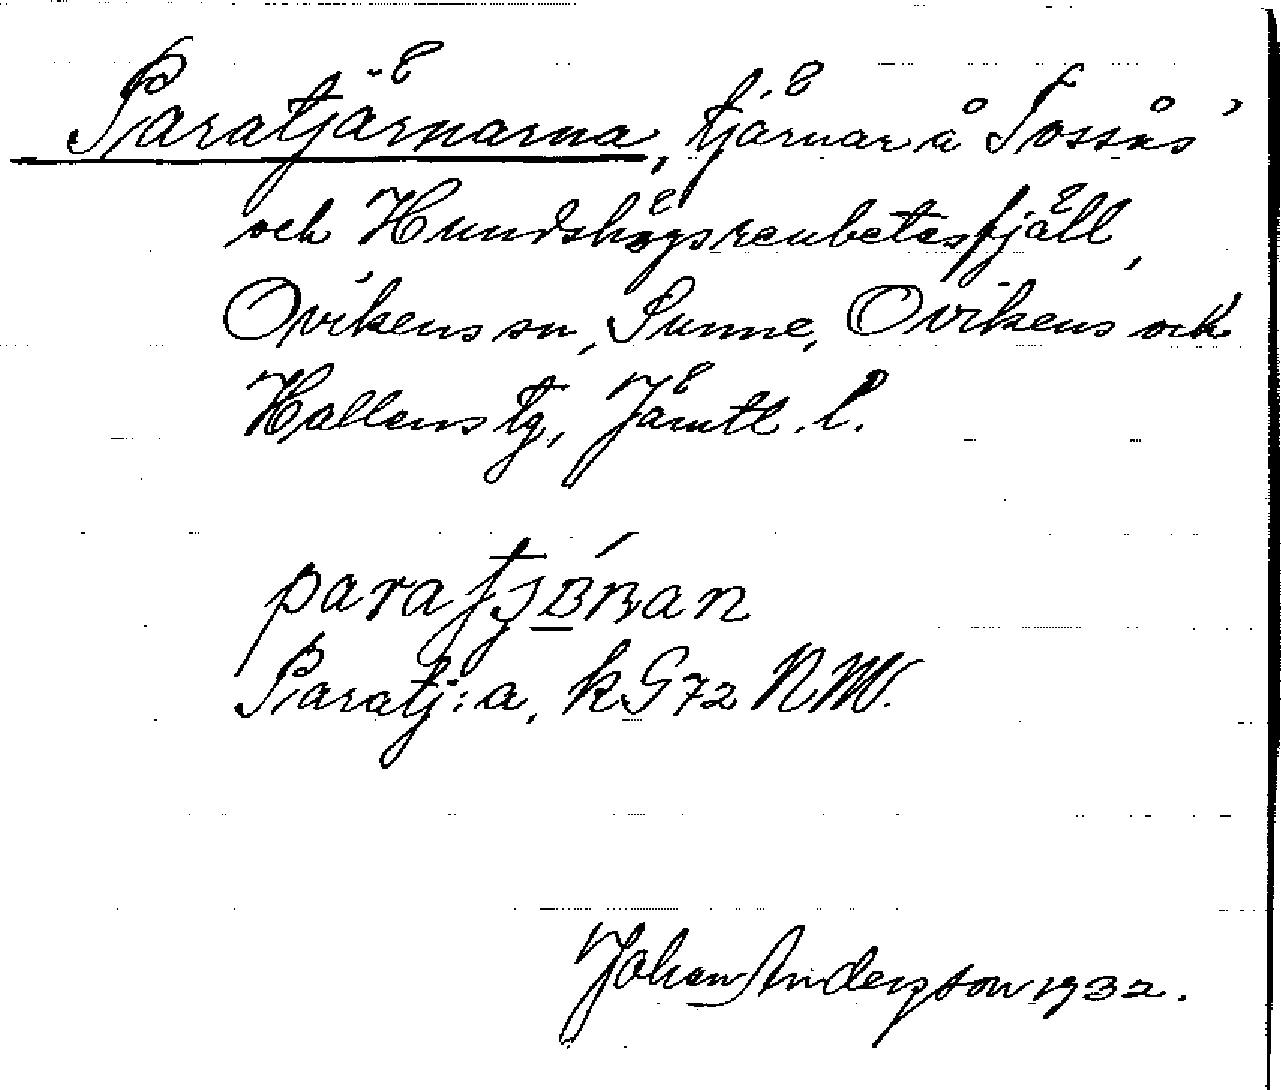 Paratjärnarna, tjärnar å Tossås'
och Hundshögsrenbetesfjäll,
Ovikens sn, Sunne, Ovikens och
Hallens tg, Jämtl. l.
Paratj:a, k G72 NM.
Johan Anderson 1932.